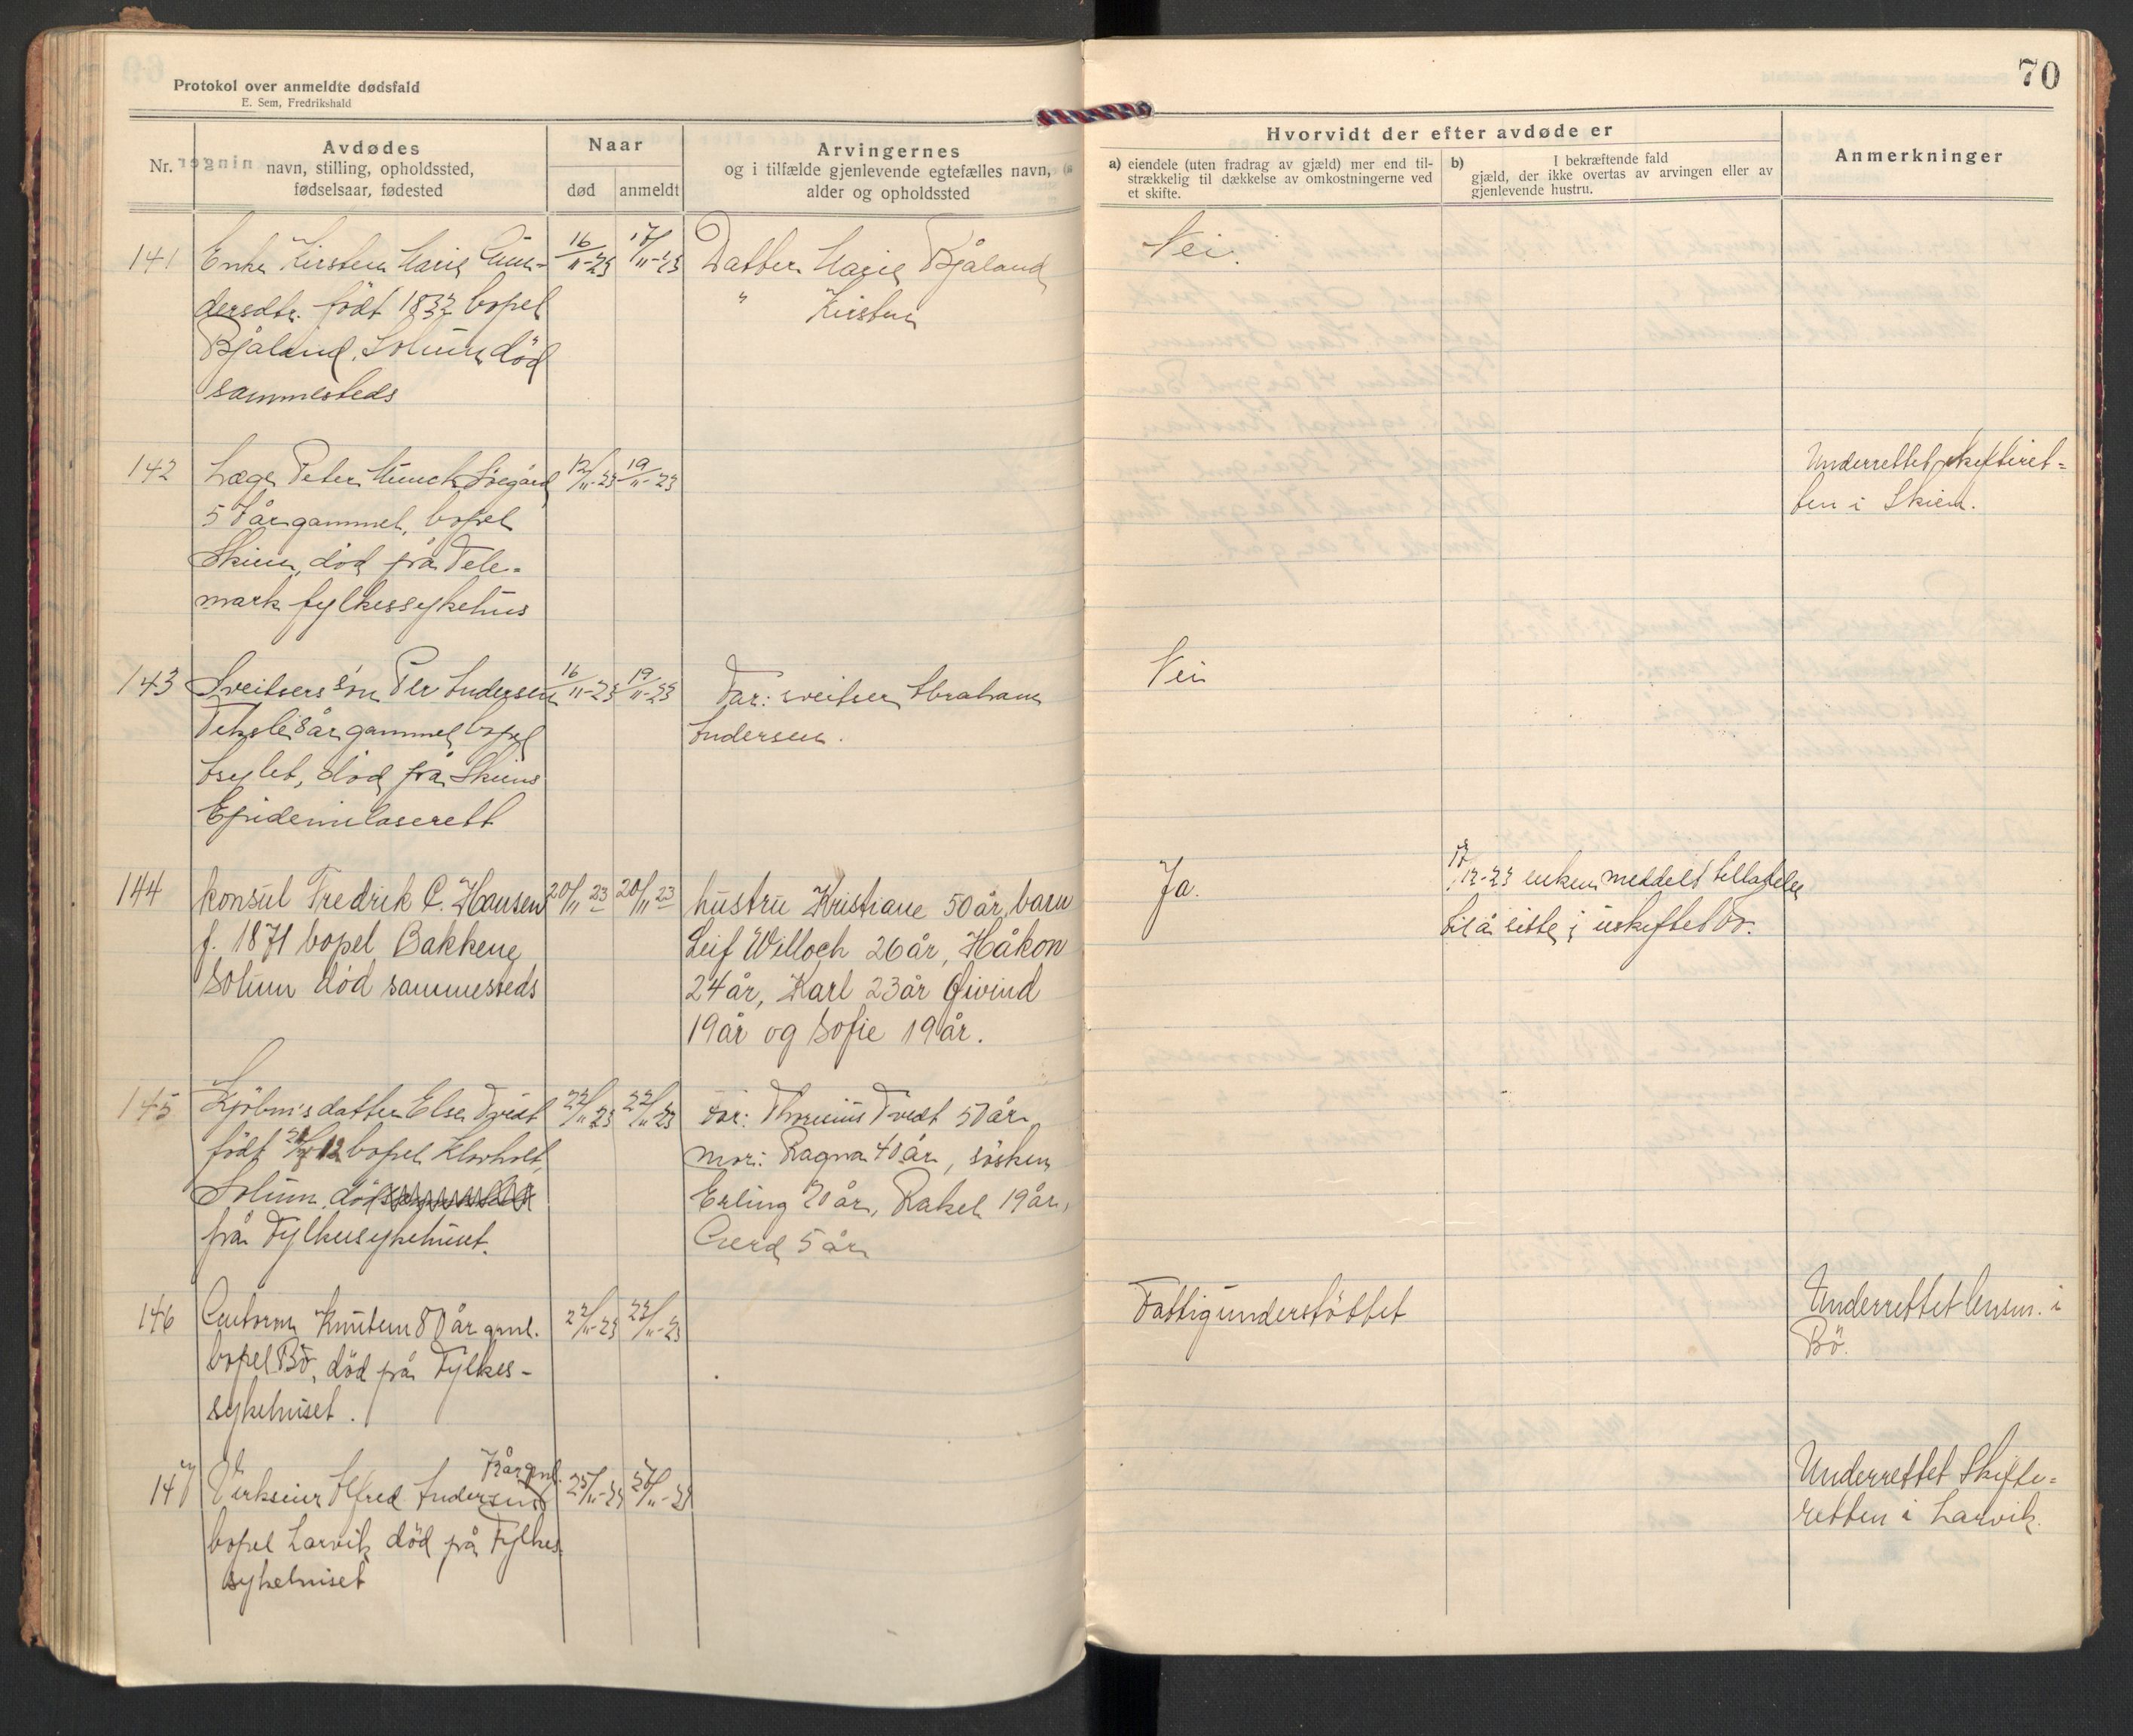 Protokol over anmeldte dødsfald
E. Sem, Fredrikshald
70
Nr.
Avdødes
navn, stilling, opholdssted,
fødselsaar, fødested
Naar
død
anmeldt
Arvingernes
og i tilfælde gjenlevende egtefælles navn,
alder og opholdssted
Hvorvidt der efter avdøde er
a) eiendele (uten fradrag av gjæld) mer end til-
strækkelig til dækkelse av omkostningerne ved
et skifte.
b) I bekræftende fald
gjæld, der ikke overtas av arvingen eller av
gjenlevende hustru.
Anmerkninger
141 Enke Kirsten Marie Gun- 16/11-23 17/11-23 Datter Marie Bjåland Nei.
dersdtr. født 1832 bopel " Kirsten
Bjåland, Solum død
sammesteds
142 Læge Peter Munch Søegård 12/11-23 19/11-23 Underrettet skifteret-
57 år gammel, bopel ten i Skien.
Skien, død på Tele-
mark fylkessykehus
143 Sveitsers søn Per Andersen 16/11-23 19/11-23 Far: sveitser Abraham Nei
8 år gammel bopel Andersen.
Asylet, død på Skiens
Epidemilaserett
144 konsul Fredrik C. Hansen 20/11 23 20/11 23 hustru Kristiane 50 år, barn Ja. /12-23 enken meddelt tilladelse
f. 1871 bopel Bakkene Leif Willoch 26 år, Håkon til å sitte i uskiftet bo.
Solum død sammesteds 24 år, Karl 23 år Øivind
19 år og Sofie 19 år.
145 datter Else Tvedt 22/11-23 22/11-23 Far: Thorenius Tvedt 50 år
født bopel Klovholt, mor: Ragna 40 år, søsken
Solum, død Erling 20 år, Rakel 19 år,
på Fylkessykehuset. Gerd 5 år
146 Gutorm Knutsen 80 år gml. 22/11-23 23/11-23 Fattigunderstøttet Underrettet lensm. i
bopel Bø, død på Fylkes- Bø.
sykehuset.
147 Verkseier Alfred Andersen år gml. 25/11-23 26/11-23 Underrettet Skifte-
bopel Larvik død på Fylkes retten i Larvik.
sykehuset